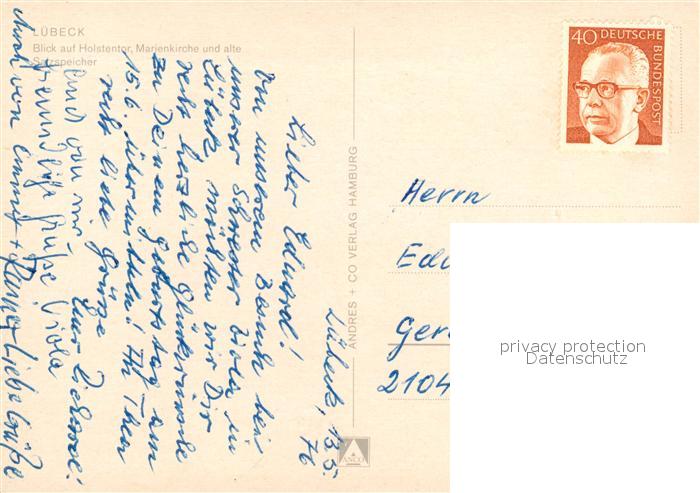 LÜBECK
Blick auf Holstentor, Marienkirche und alte
Salzspeicher
40 DEUTSCHE
BUNDESPOST
ANDRES + CO VERLAG HAMBURG
ANCO
Lübeck, 13.5.
76
Lieber Eduard!
Von unserem Besuch bei
unserer Schwester Viola in
Lübeck möchten wir Dir
recht herzliche Glückwünsche
zu Deinem Geburtstag am
15.6. übermitteln!
recht liebe Grüße
Und von mir
freundliche Grüße Viola
Auch von + Rainer Liebe Grüße
Herrn
Edu
Ger
2104
privacy protection
Datenschutz